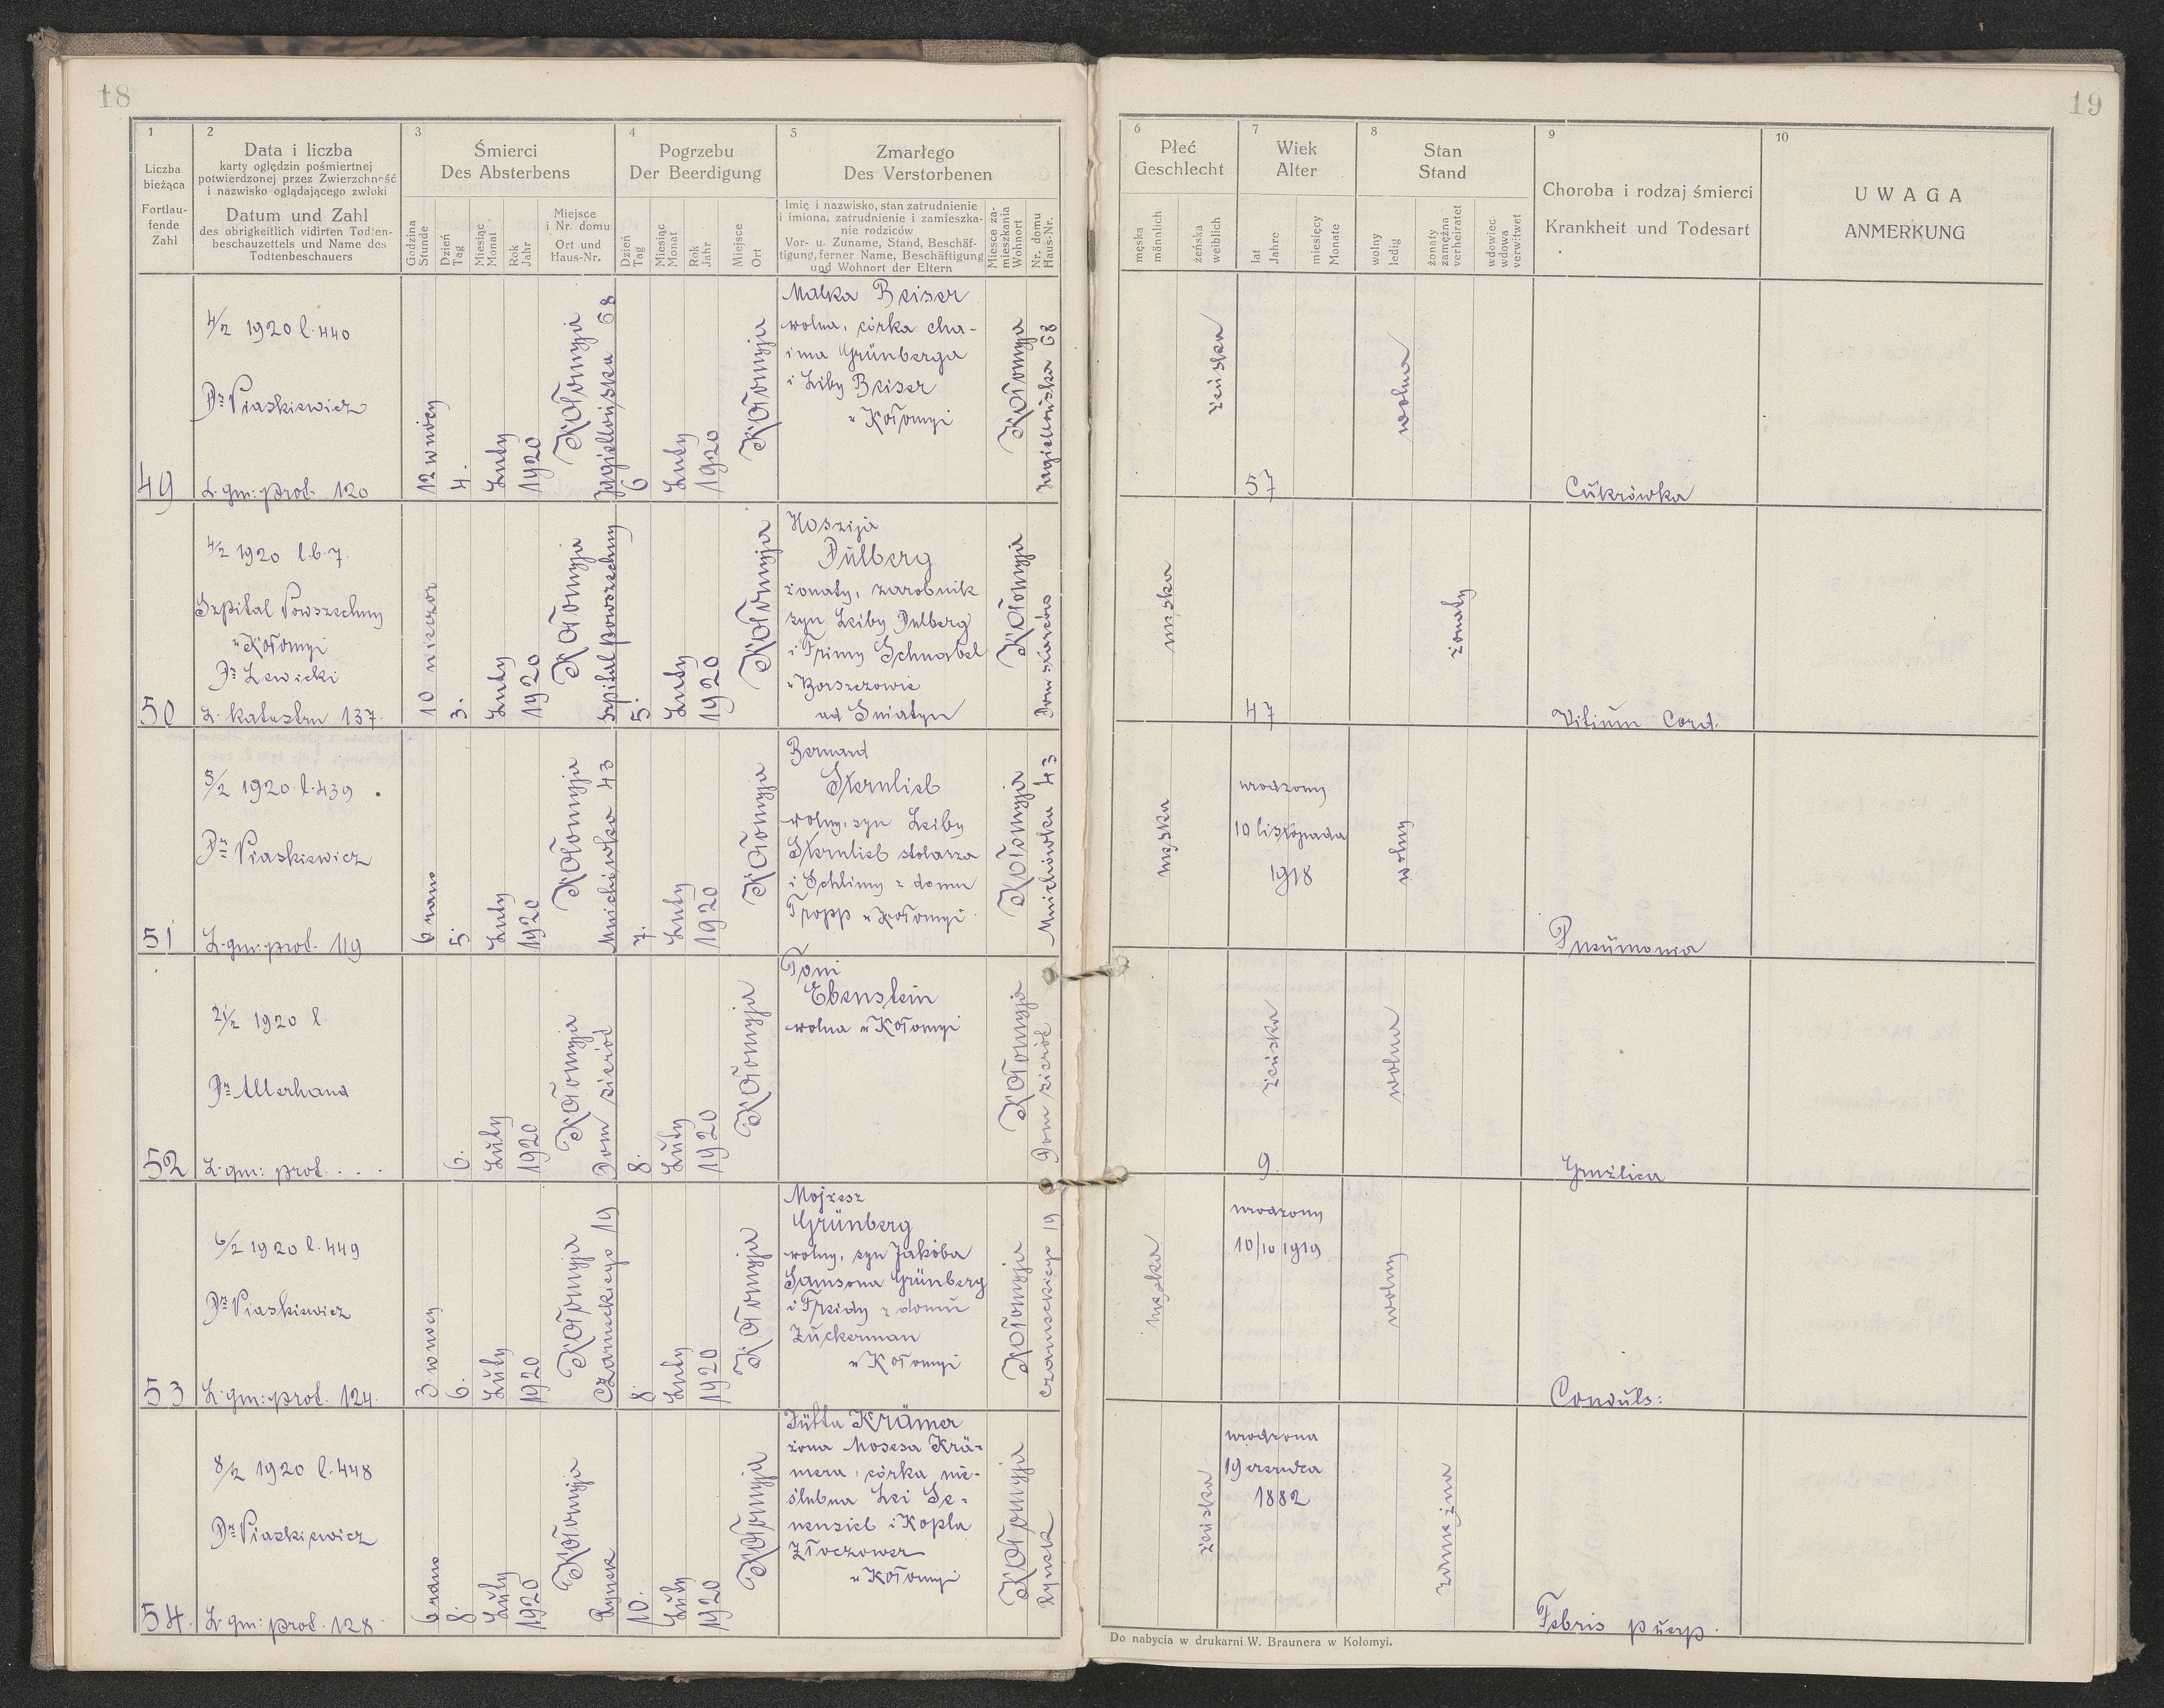 18
19
1
Liczba
bieżąca
Fortlau-
fende
Zahl
2
Data i liczba
karty oględzin pośmiertnej
potwierdzonej przez Zwierzchność
i nazwisko oglądającego zwłoki
Datum und Zahl
des obrigkeitlich vidirten Todten-
beschauzettels und Name des
Todtenbeschauers
3
Śmierci
Des Absterbens
Godzina
Stunde
Dzień
Tag
Miesiąc
Monat
Rok
Jahr
Miejsce
i Nr. domu
Ort und
Haus-Nr.
4
Pogrzebu
Der Beerdigung
Dzień
Tag
Miesiąc
Monat
Rok
Jahr
Miejsce
Ort
5
Zmarłego
Des Verstorbenen
Imię i nazwisko, stan zatrudnienie
i imiona, zatrudnienie i zamieszka-
nie rodziców
Vor- u. Zuname, Stand, Beschäf-
tigung, ferner Name, Beschäftigung
und Wohnort der Eltern
Miesce za-
mieszkania
Wohnort
Nr. domu
Haus-Nr.
6
Płeć
Geschlecht
męska
männlich
żeńska
weiblich
7
Wiek
Alter
lat
Jahre
miesięcy
Monate
8
Stan
Stand
wolny
ledig
żonaty
zamężna
verheiratet
wdowiec
wdowa
verwitwet
9
Choroba i rodzaj śmierci
Krankheit und Todesart
10
UWAGA
ANMERKUNG
49
4/2 1920 l. 440
Dr Piaskiewicz
L. gm: prot. 120
12 w nocy
4.
Luty
1920
Kołomyja
Jagiellońska 68
6
Luty
1920
Kołomyja
Malka Beiser
wolna, córka Cha-
ima Grünberga
i Liby Beiser
w Kołomyi
Kołomyja
Jagiellońska 68
żeńska
57
wolna
Cukrówka
50
4/2 1920 l. b. 7.
Szpital Powszechny
w Kołomyi
Dr Lewicki
L. katastru 137.
10 wieczor
3.
Luty
1920
Kołomyja
Szpital powszechny
5.
Luty
1920
Kołomyja
Hoszija
Dulberg
żonaty, zarobnik
syn Leiby Dulberg
i Frimy Schnabel
w Borszczowie
ad Sniatyn
Kołomyja
Dom starców
męska
47
żonaty
Vitium Cord.
51
5/2 1920 l. 439
Dr Piaskiewicz
L. gm: prot. 119
6 rano
5.
Luty
1920
Kołomyja
Mnichówka 43
7.
Luty
1920
Kołomyja
Bernard
Sternlieb
wolny, syn Leiby
Sternlieb stolarza
i Schlimy z domu
Tropp w Kołomyi
Kołomyja
Mnichówka 43
męska
urodzony
10 listopada
1918
wolny
Pneumonia
52
21/2 1920 l
Dr Allerhand
L. gm: prot. . . .
6.
Luty
1920
Kołomyja
Dom sierót
8.
Luty
1920
Kołomyja
Toni
Ebenstein
wolna w Kołomyi
Kołomyja
Dom sierót
żeńska
9.
wolna
Gruźlica
53
6/2 1920 l. 449
Dr Piaskiewicz
L. gm: prot. 124.
3 w nocy
6.
Luty
1920
Kołomyja
Czarneckiego 19
8.
Luty
1920
Kołomyja
Mojzesz
Grünberg
wolny, syn Jakóba
Samsona Grünberg
i Freidy z domu
Zuckerman
w Kołomyi
Kołomyja
Czarneckiego 19
męska
urodzony
10/10 1919
wolny
Convuls:
54.
8/2 1920 l. 448
Dr Piaskiewicz
L. gm: prot. 128
6 rano
8.
Luty
1920
Kołomyja
Rynek
10.
Luty
1920
Kołomyja
Jütta Krämer
żona Mosesa Krä-
mera, córka nie-
ślubna Lei Se-
nensieb i Kopla
Złoczower
w Kołomyi
Kołomyja
Rynek
żeńska
urodzona
19 czerwca
1882
zamężna
Febris puerp.
Do nabycia w drukarni W. Braunera w Kołomyi.